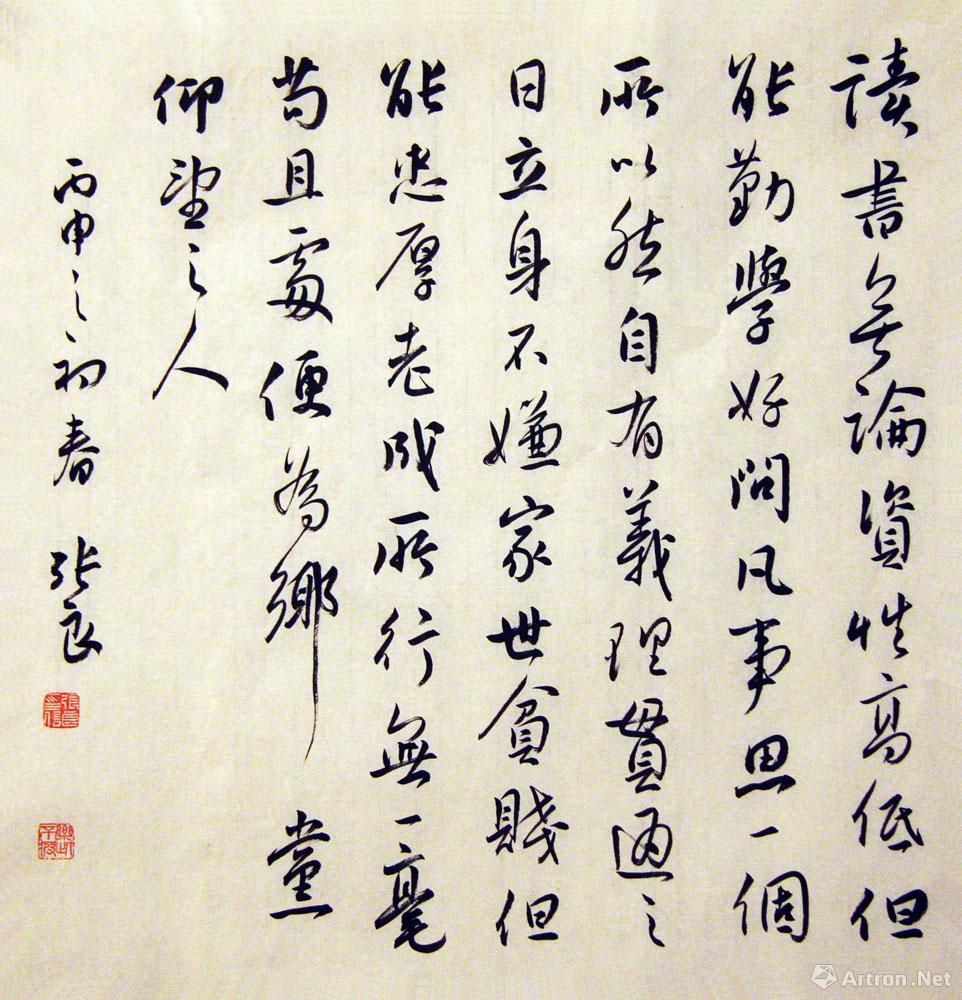 讀書無論資性高低但
能勤學好問凡事思一個
所以然自有義理貫通之
日立身不嫌家世貧賤但
能忠厚老成所行無一毫
苟且處便為鄉黨
仰望之人
丙申之初春 張良
Artron.Net